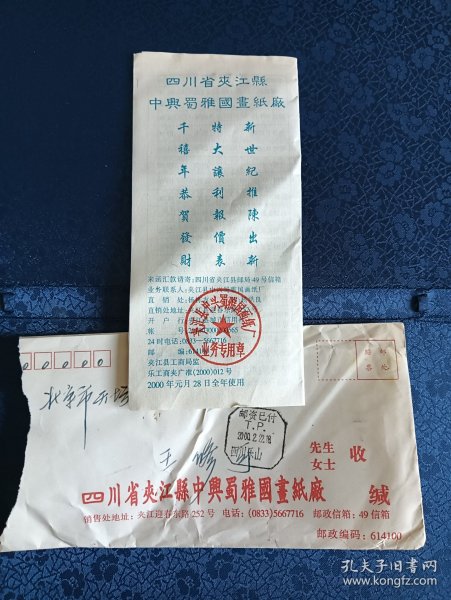 四川省夾江縣
中興蜀雅國畫紙廠
新世紀推陳出新
特大讓利報價表
千禧年恭賀發財
来函汇款请寄:四川省夹江县邮局49号信箱
业务联系人:夹江县中兴蜀雅国画纸厂
直销处:
直销处地址:
开户行:
帐号:
24时电话:0833-5667716
邮编:614100
夹江县工商局监
乐工商夹广准(2000)012号
2000年元月28日全年使用
业务专用章
贴邮
票处
北京市
邮资已付
T.P.
2000.2.22.18
四川乐山
王
先生
女士
收
四川省夾江縣中興蜀雅國畫紙廠 缄
销售处地址:夹江迎春东路252号 电话:(0833)5667716 邮政信箱:49信箱
邮政编码:614100
孔夫子旧书网
book.kongfz.com